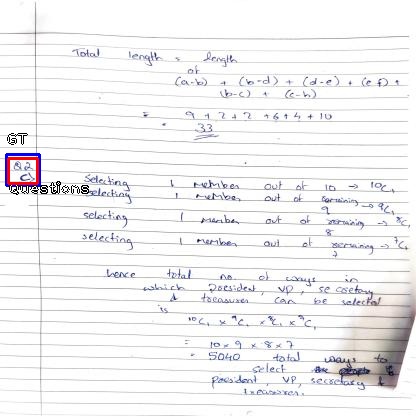 Total length = length
of
(a-b) + (b-d) + (d-e) + (e-f) +
(b-c) + (c-h)
= 9 + 2 + 2 + 6 + 4 + 10
= 33
GT
Q2
a)
Questions
Selecting 1 member out of 10 → 10C1
selecting 1 member out of remaining 9 → 9C1
selecting 1 member out of remaining 8 → 8C1
selecting 1 member out of remaining 7 → 7C1
hence total no. of ways in
which president, VP, secretary
& treasurer can be selected
is
10C1 × 9C1 × 8C1 × 7C1
= 10 × 9 × 8 × 7
= 5040 total ways to
select
president, VP, secretary &
treasurer.